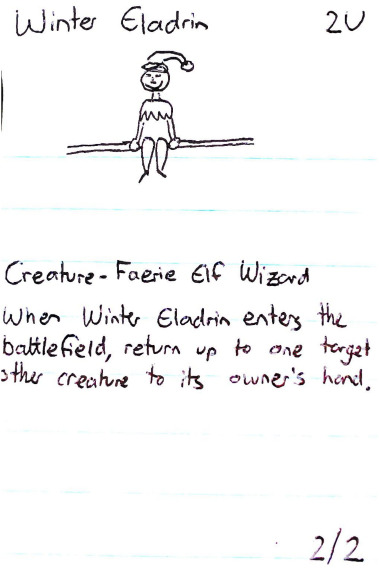 Winter Eladrin 2U
Creature - Faerie Elf Wizard
When Winter Eladrin enters the
battlefield, return up to one target
other creature to its owner's hand.
2/2